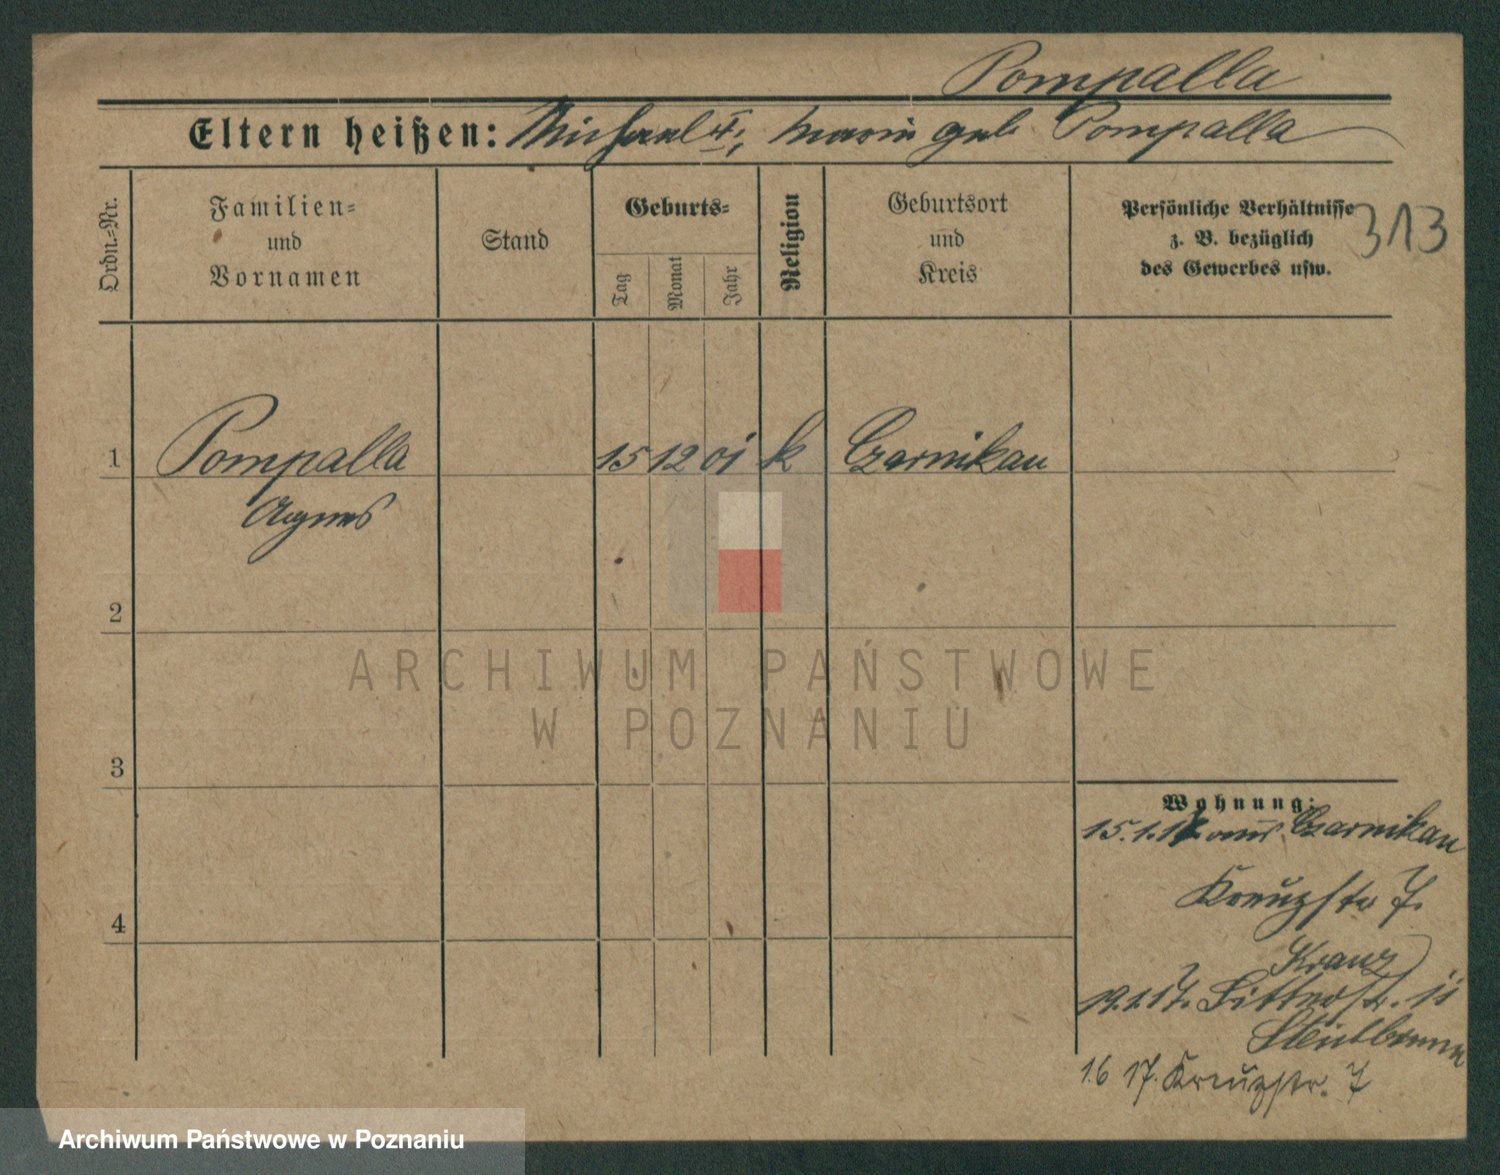 Pompalla
Eltern heißen: Michael †, Maria geb. Pompalla
Ordn.-Nr.
Familien-
und
Vornamen
Stand
Geburts-
Tag
Monat
Jahr
Religion
Geburtsort
und
Kreis
Persönliche Verhältnisse
z. B. bezüglich
des Gewerbes usw.
313
1
Pompalla
Agnes
15 12 01 k
Czarnikau
2
3
4
ARCHIWUM PAŃSTWOWE
W POZNANIU
Wohnung:
15.1.17 aus Czarnikau
Kreuzstr 7.
Kranz
19.1.17. Ritterstr. 11
1.6 17. Kreuzstr. 7
Archiwum Państwowe w Poznaniu